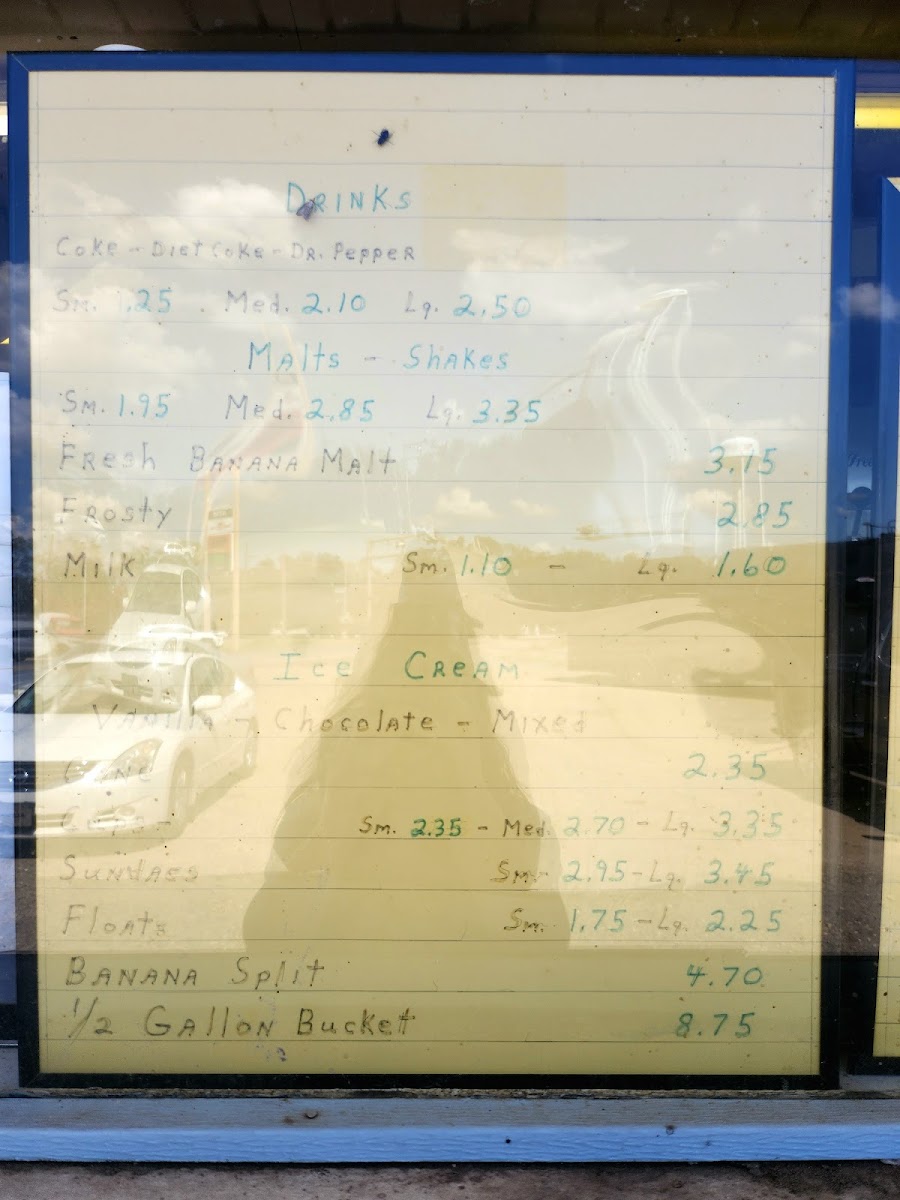 Drinks
Coke - Diet Coke - Dr. Pepper
Sm. 1.25 Med. 2.10 Lg. 2.50
Malts - Shakes
Sm. 1.95 Med. 2.85 Lg. 3.35
Fresh Banana Malt
Frosty 2.85
Milk Sm. 1.10 - Lg. 1.60
Ice Cream
Vanilla - Chocolate - Mixed
Cone 2.35
Cups - Sm. 2.35 - Med. 2.70 - Lg. 3.35
Sundaes Sm. 2.95 - Lg. 3.45
Floats Sm. 1.75 - Lg. 2.25
Banana Split 4.70
1/2 Gallon Bucket 8.75